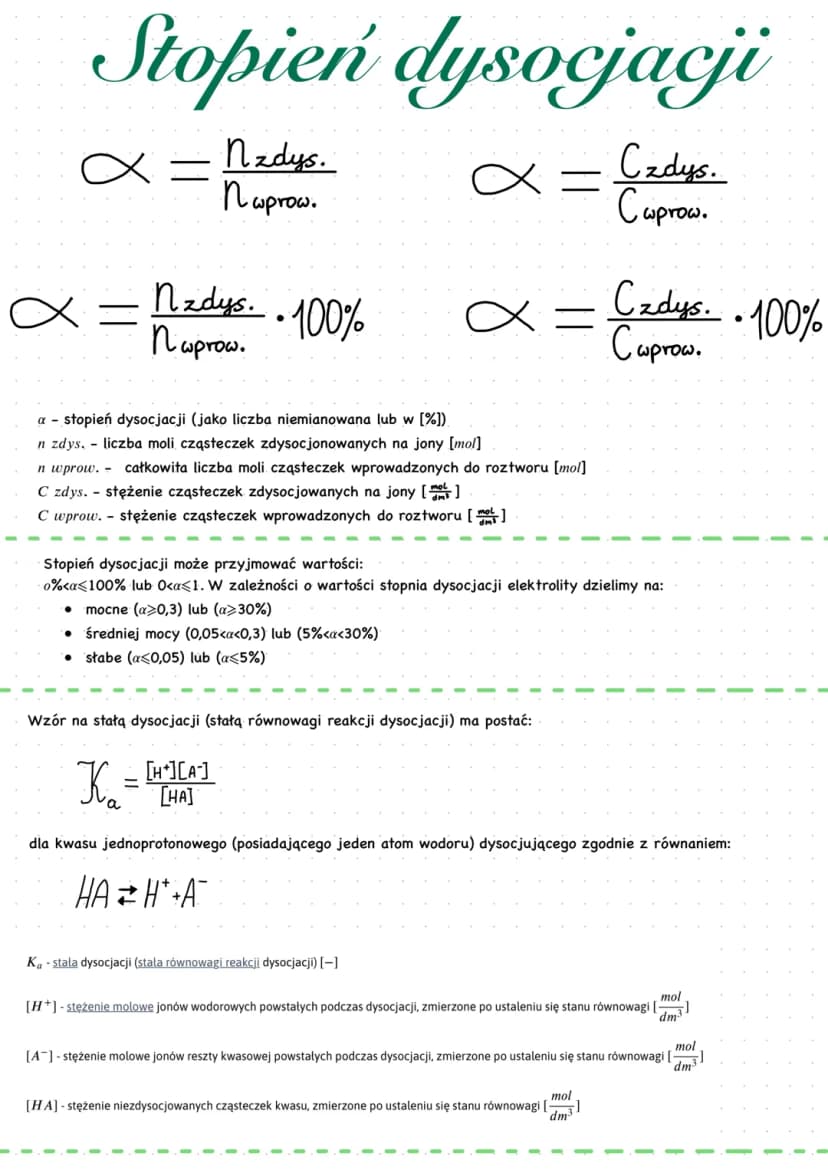 Stopień dysocjacji
α = n zdys. / n wprow.
α = C zdys. / C wprow.
α = n zdys. / n wprow. · 100%
α = C zdys. / C wprow. · 100%
α - stopień dysocjacji (jako liczba niemianowana lub w [%])
n zdys. - liczba moli cząsteczek zdysocjonowanych na jony [mol]
n wprow. - całkowita liczba moli cząsteczek wprowadzonych do roztworu [mol]
C zdys. - stężenie cząsteczek zdysocjowanych na jony [mol/dm³]
C wprow. - stężenie cząsteczek wprowadzonych do roztworu [mol/dm³]
Stopień dysocjacji może przyjmować wartości:
0%<α⩽100% lub 0<α⩽1. W zależności o wartości stopnia dysocjacji elektrolity dzielimy na:
• mocne (α⩾0,3) lub (α⩾30%)
• średniej mocy (0,05<α<0,3) lub (5%<α<30%)
• słabe (α⩽0,05) lub (α⩽5%)
Wzór na stałą dysocjacji (stałą równowagi reakcji dysocjacji) ma postać:
Kₐ = [H⁺][A⁻] / [HA]
dla kwasu jednoprotonowego (posiadającego jeden atom wodoru) dysocjującego zgodnie z równaniem:
HA ⇄ H⁺ + A⁻
Kₐ - stała dysocjacji (stała równowagi reakcji dysocjacji) [−]
[H⁺] - stężenie molowe jonów wodorowych powstałych podczas dysocjacji, zmierzone po ustaleniu się stanu równowagi [mol/dm³]
[A⁻] - stężenie molowe jonów reszty kwasowej powstałych podczas dysocjacji, zmierzone po ustaleniu się stanu równowagi [mol/dm³]
[HA] - stężenie niezdysocjowanych cząsteczek kwasu, zmierzone po ustaleniu się stanu równowagi [mol/dm³]